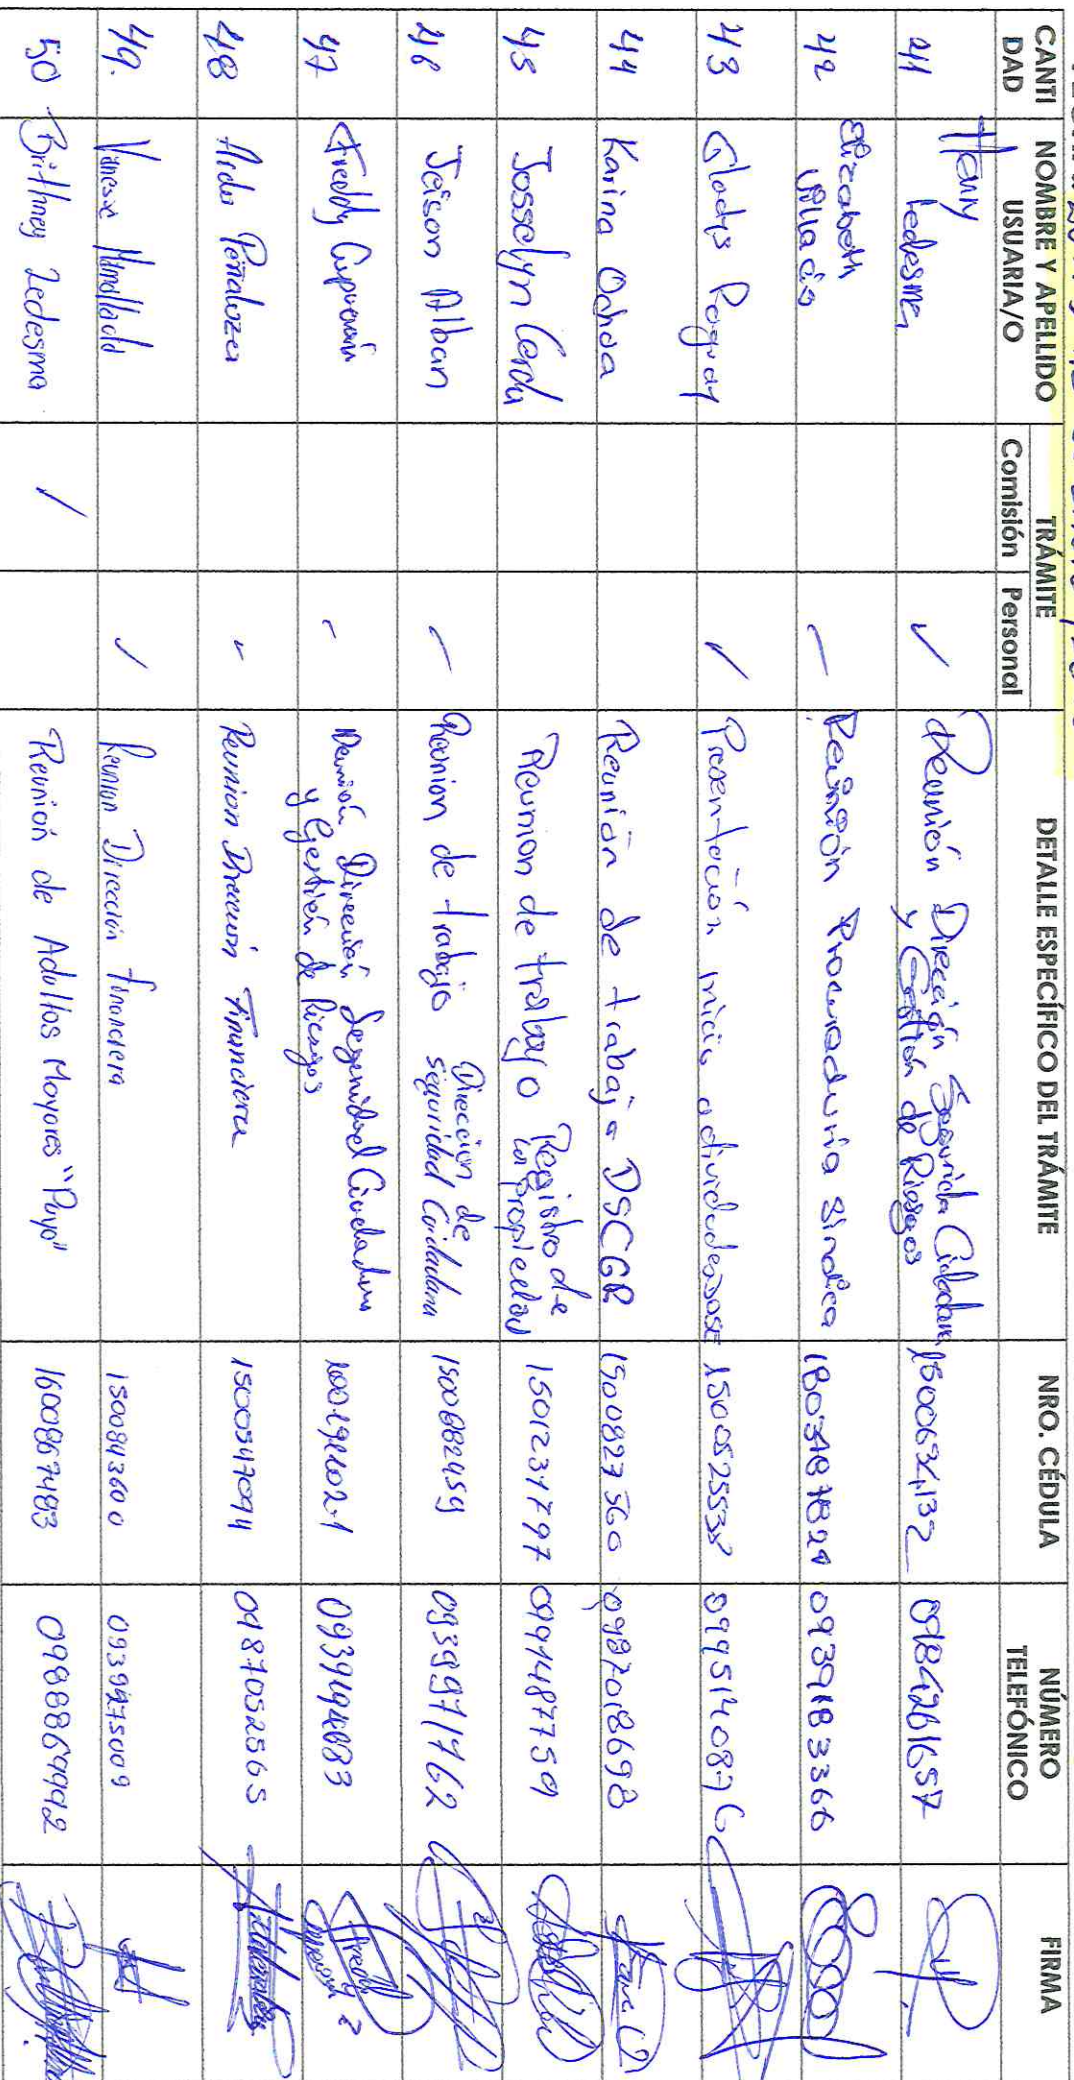 CANTI DAD | NOMBRE Y APELLIDO USUARIA/O | TRÁMITE Comisión | Personal | DETALLE ESPECÍFICO DEL TRÁMITE | NRO. CÉDULA | NÚMERO TELEFÓNICO | FIRMA
41 | Henry Ledesma | ✓ | Reunión Dirección Segurida Ciudadana y Gestión de Riesgos | 1500634132 | 0984261657
42 | Elizabeth Villacis | Reunión Procuraduria Sindica | 1803487824 | 0939183366
43 | Gladys Paguay | ✓ | Presentación inicio actividades | 1500525538 | 0995140876
44 | Karina Ochoa | Reunión de trabajo DSCGR | 1500827560 | 0987018698
45 | Josselyn Cerda | Reunion de trabajo Registro de la propiedad | 1501231797 | 0994487759
46 | Jeison Alban | Reunion de trabajo Dirección de seguridad Ciudadana | 1500682459 | 0939971762
47 | Freddy | Reunión Dirección Seguridad Ciudadana y Gestión de Riesgos
48 | Peñaloza | Reunion Dirección Financiera | 1500547094 | 0987052565
49. | Vanessa | ✓ | Reunion Dirección financiera | 1500843600 | 0939975009
50 | Brithney Ledesma | / | Reunión de Adultos Mayores "Puyo" | 1600867483 | 0988869992